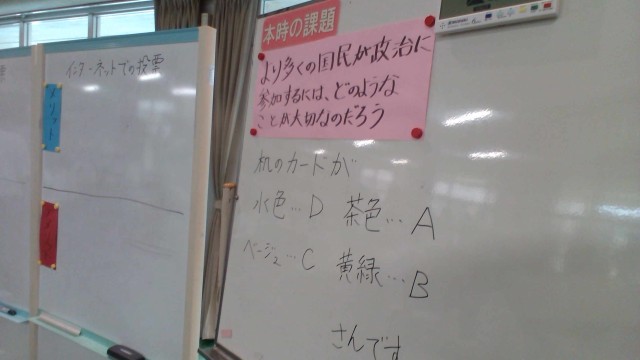 インターネットでの投票
メリット
本時の課題
より多くの国民が政治に
参加するには、どのような
ことが大切なのだろう
机のカードが
水色…D 茶色…A
ベージュ…C 黄緑…B
さんです